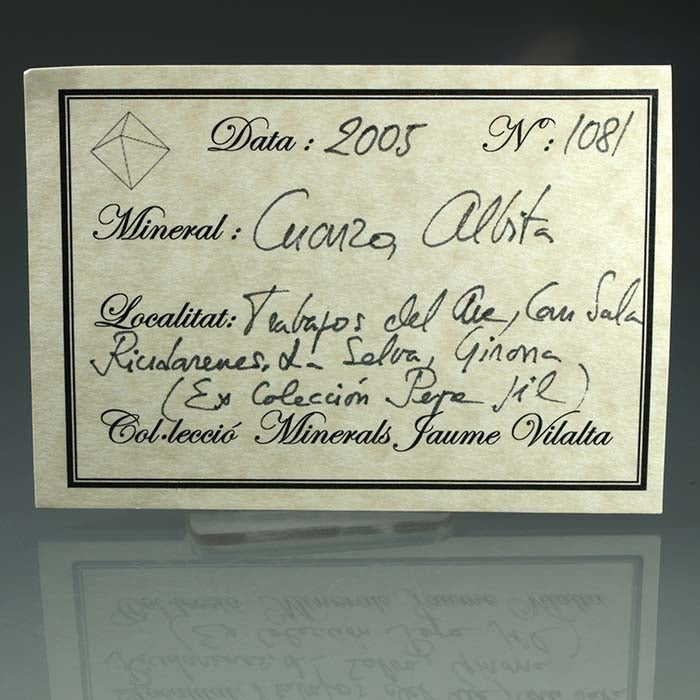 Data : 2005 Nº: 1081
Mineral : Cuarzo, Albita
Localitat: Trabajos del Ave, Can Sala
Riudarenes, La Selva, Girona
(Ex Colección Pepe Gil)
Col·lecció Minerals Jaume Vilalta